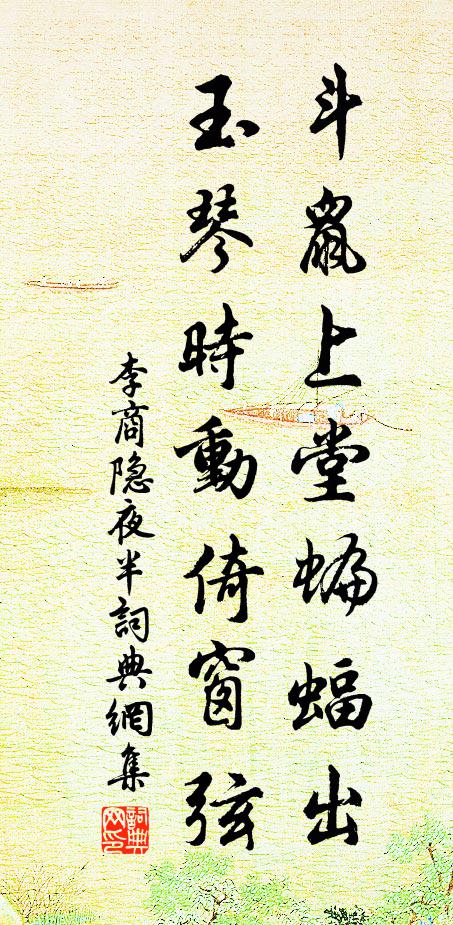 斗鼠上堂蝙蝠出
玉琴時動倚窗弦
李商隐夜半詞典網集
詞典网印